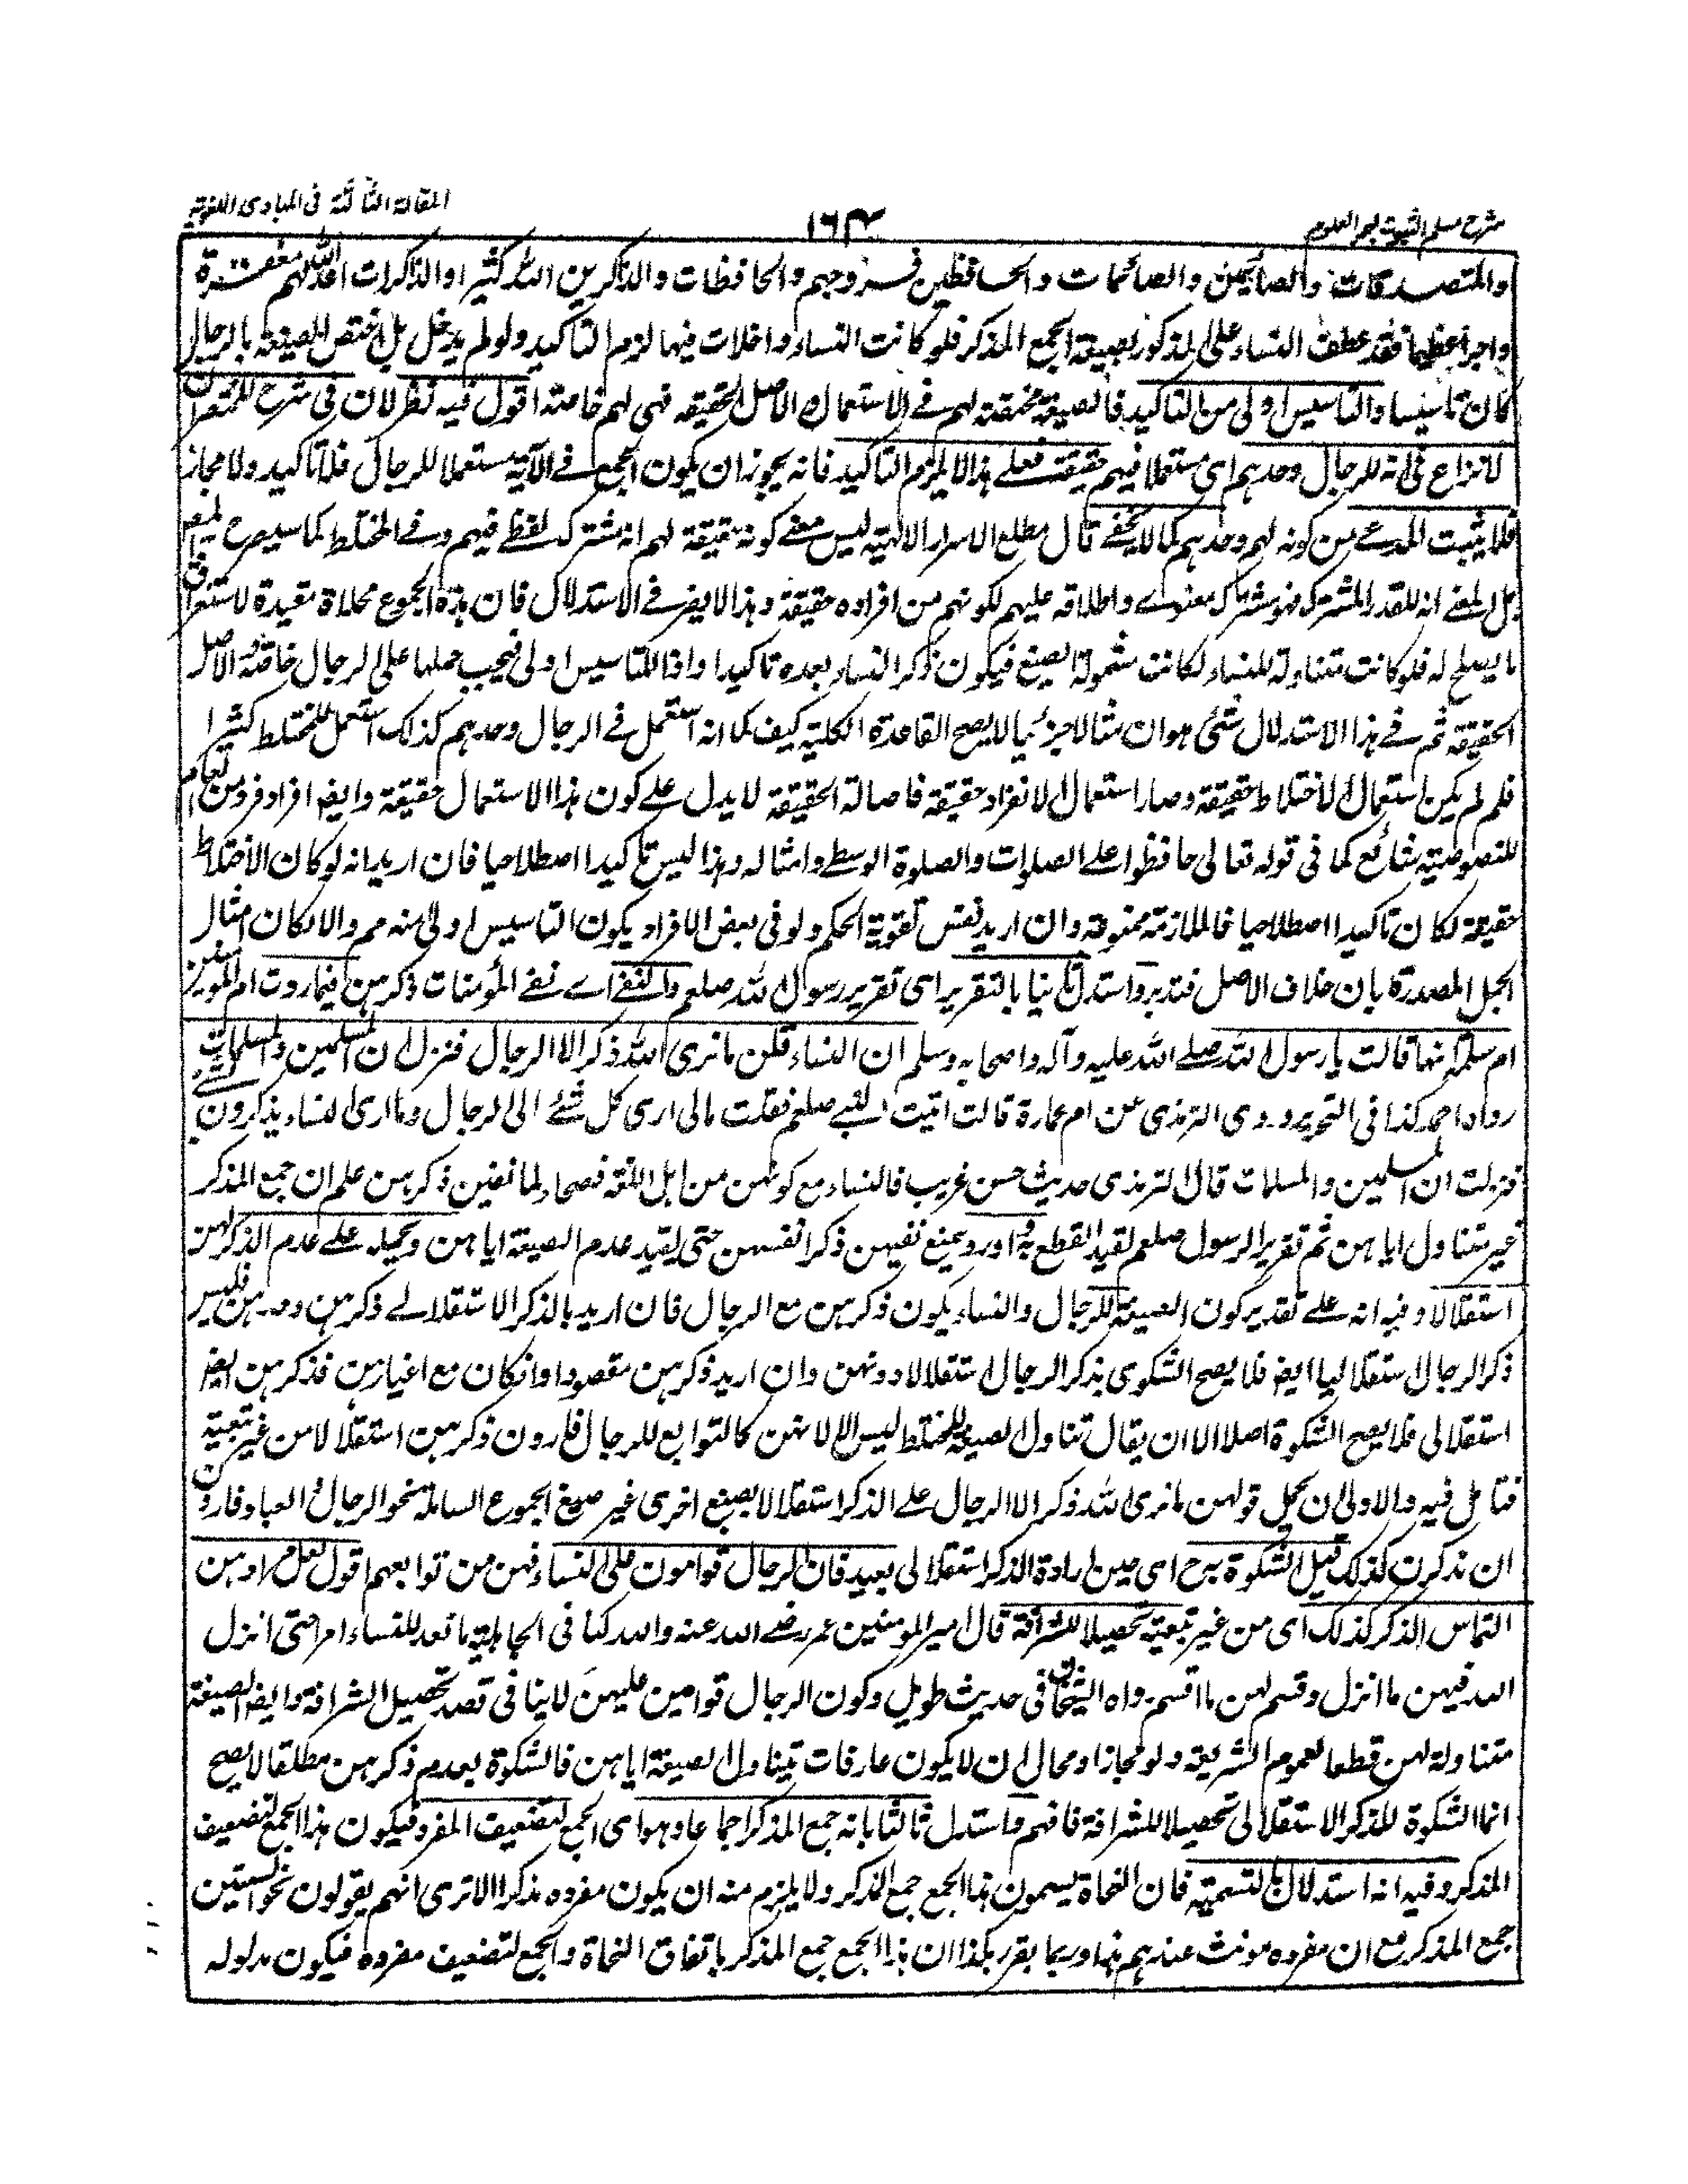 المقالة الثالثة فى المبادى اللغوية
١٦٤
شرح مسلم الثبوت لبحر العلوم
والمتصدقات والصائمين والصائمات والحافظين فروجهم والحافظات والذاكرين الله كثيرا والذاكرات اعد الله لهم مغفرة
واجرا عظيما فقد عطف النساء على المذكور بصيغة الجمع المذكر فلو كانت النساء داخلات فيها لزم التاكيد ولو لم يدخل بل اختص الصيغة بالرجال
كان تاسيسا والتاسيس اولى من التاكيد فالصيغة مختصة لهم فى الاستعمال والاصل الحقيقة فهى لهم خاصة اقول فيه نظر لان فى شرح المختصر ان
لا نزاع فى انه للرجال وحدهم اى مستعملا فيهم حقيقة فعلى هذا لا يلزم التاكيد فانه يجوز ان يكون الجمع فى الآية مستعملا للرجال فلا تاكيد ولا مجاز
فلا يثبت المدعى من كونه لهم وحدهم كما لا يخفى قال مطلع الاسرار الالهية ليس معنى كونه حقيقة لهم انه مشترك لفظى فيهم وفى المختلط كما سيصرح المصنف
بل المعنى انه للقدر المشترك فهو مشترك معنوى واطلاقه عليهم لكونهم من افراده حقيقة وهذا لا يضر فى الاستدلال فان هذه الجموع محلاة مفيدة لاستغراق
ما يصلح له فلو كانت متناولة للنساء لكانت مشمولة الصيغ فيكون ذكر النساء بعده تاكيدا واذا للتاسيس اولى فيجب حملها على الرجال خاصة والاصل
الحقيقة ثم فى هذا الاستدلال شئ هو ان مثالا جزئيا لا يصح القاعدة الكلية كيف كما انه استعمل فى الرجال وحدهم كذلك استعمل للمختلط كثيرا
فلم لم يكن استعمال الاختلاط حقيقة وصار استعمال الانفراد حقيقة فاصالة الحقيقة لا يدل على كون هذا الاستعمال حقيقة وايضا افراد فرد من العام
للخصوصية شائع كما فى قوله تعالى حافظوا على الصلوات والصلوة الوسطى وامثاله وهذا ليس تاكيدا اصطلاحيا فان اريد انه لو كان الاختلاط
حقيقة لكان تاكيدا اصطلاحيا فالملازمة ممنوعة وان اريد نفس تقوية الحكم ولو فى بعض الافراد يكون التاسيس اولى منه مم والا لكان امثال
الجمل المصدرة بان خلاف الاصل فتدبر واستدل ثانيا بالتقرير اى تقرير رسول الله صلعم والنفى اى نفى المؤمنات ذكرهن فيما روت ام المؤمنين
ام سلمة انها قالت يا رسول الله صلى الله عليه وآله واصحابه وسلم ان النساء قلن ما نرى الله ذكر الا الرجال فنزل ان المسلمين والمسلمات
رواه احمد كذا فى التحرير وروى الترمذى عن ام عمارة قالت اتيت النبى صلعم فقلت مالى ارى كل شئ الى الرجال وما ارى النساء يذكرون بشئ
فنزلت ان المسلمين والمسلمات قال الترمذى حديث حسن غريب فالنساء مع كونهن من اهل اللغة فصحاء لما نفين ذكرهن علم ان جمع المذكر
غير متناول اياهن ثم تقرير الرسول صلعم يفيد القطع به اورد يمنع نفيهن ذكر انفسهن حتى يفيد عدم الصيغة اياهن ويحمله على عدم الذكر لهن
استقلالا وفيه انه على تقدير كون الصيغة للرجال والنساء يكون ذكرهن مع الرجال فان اريد بالذكر الاستقلالى ذكرهن وحدهن فليس
ذكر الرجال استقلاليا ايضا فلا يصح الشكوى بذكر الرجال استقلالا دونهن وان اريد ذكرهن مقصودا وان كان مع اغيارهن فذكرهن ايضا
استقلالى فلا يصح الشكوة اصلا الا ان يقال تناول الصيغة للمختلط ليس الا لانهن كالتوابع للرجال فاردن ذكرهن استقلالا من غير تبعية
فتامل فيه والاولى ان يحمل قولهن ما نرى الله ذكر الا الرجال على الذكر استقلالا بصيغ اخرى غير صيغ الجموع السالمة نحو الرجال العباد فاردن
ان تذكرن كذلك قيل الشكوة ح اى حين ارادة الذكر استقلالى بعيد فان الرجال قوامون على النساء فهن من توابعهم اقول لعل مرادهن
التماس الذكر كذلك اى من غير تبعية تحصيلا للشرافة قال امير المؤمنين عمر رضى الله عنه والله كنا فى الجاهلية ما نعد للنساء امرا حتى انزل
الله فيهن ما انزل وقسم لهن ما اقسم رواه الشيخان فى حديث طويل وكون الرجال قوامين عليهن لا ينافى قصد تحصيل الشرافة وايضا الصيغة
متناولة لهن قطعا لعموم الشريعة ولو مجازا ومحال ان لا يكون عارفات بتناول الصيغة اياهن فالشكوة بعدم ذكرهن مطلقا لا يصح
انما الشكوة للذكر الاستقلالى تحصيلا للشرافة فافهم واستدل ثالثا بانه جمع المذكر اجماعا وهو اى الجمع لتضعيف المفرد فيكون هذا الجمع لتضعيف
المذكر وفيه انه استدلال بالتسمية فان النحاة يسمون هذا الجمع جمع المذكر ولا يلزم منه ان يكون مفرده مذكرا الا ترى انهم يقولون نحو السنين
جمع المذكر مع ان مفرده مونث عندهم هذا وربما يقرر بكذا ان هذا الجمع جمع المذكر باتفاق النحاة والجمع لتضعيف مفرده فيكون مدلوله